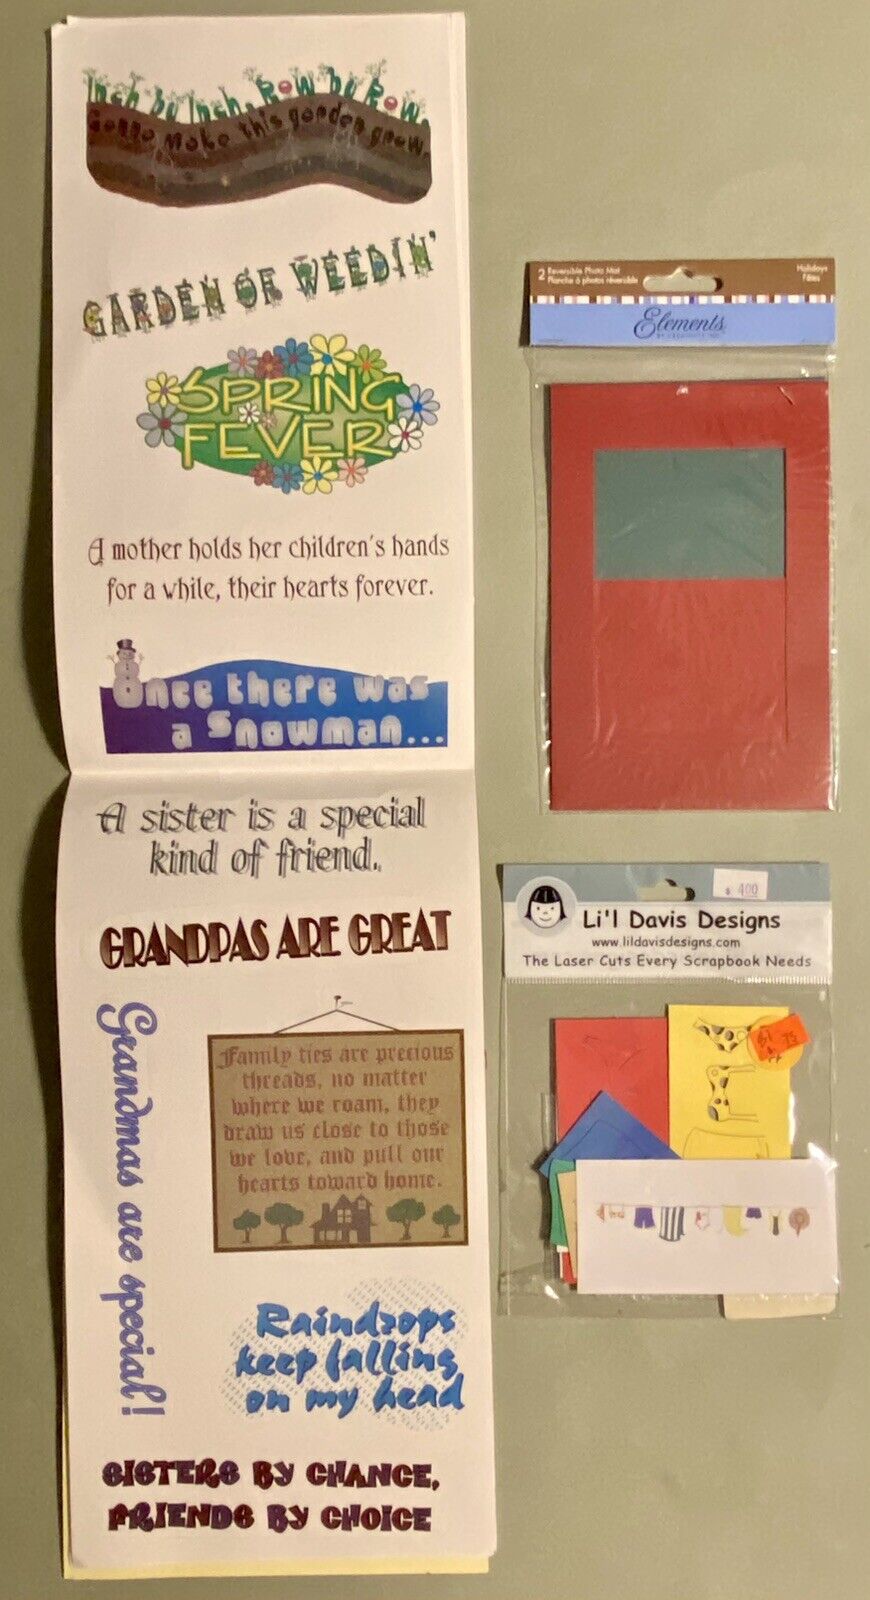 Inch by Inch, Row by Row,
Gonna make this garden grow.
GARDEN OF WEEDIN'
SPRING
FEVER
A mother holds her children's hands
for a while, their hearts forever.
Once there was
a Snowman...
A sister is a special
kind of friend.
GRANDPAS ARE GREAT
Grandmas are special!
Family ties are precious
threads, no matter
where we roam, they
draw us close to those
we love, and pull our
hearts toward home.
Raindrops
keep falling
on my head
SISTERS BY CHANCE,
FRIENDS BY CHOICE
2 Reversible Photo Mat
Planche à photos réversible
Holidays
Fêtes
Elements
$ 4.00
Li'l Davis Designs
www.lildavisdesigns.com
The Laser Cuts Every Scrapbook Needs